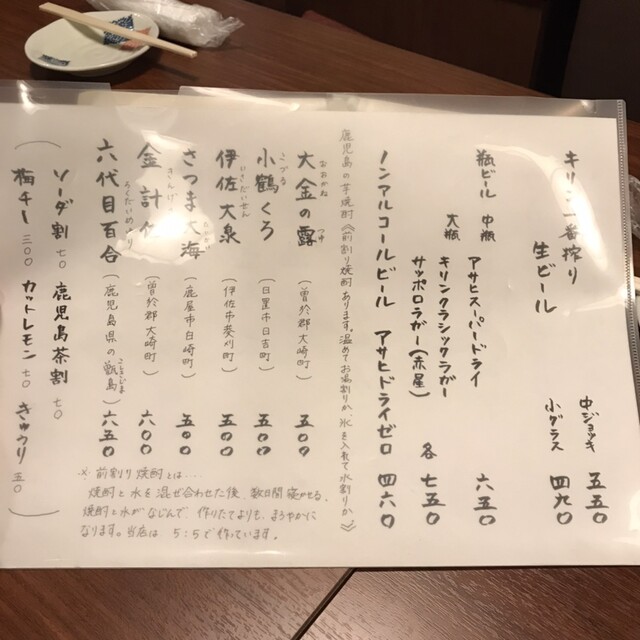 キリン一番搾り
生ビール
中ジョッキ 五五〇
小グラス 四九〇
瓶ビール 中瓶 アサヒスーパードライ 六五〇
大瓶 キリンクラシックラガー
サッポロラガー(赤星) 各 七五〇
ノンアルコールビール アサヒドライゼロ 四六〇
鹿児島の芋焼酎《前割り焼酎あります。温めてお湯割りか、氷を入れて水割りか》
大金の露 (曽於郡大崎町) 五〇〇
おおがね つゆ
小鶴くろ (日置市日吉町) 五〇〇
こづる
伊佐大泉 (伊佐市菱刈町) 五〇〇
いさだいせん
さつま大海 (鹿屋市白崎町) 五〇〇
金計佐 (曽於郡大崎町) 六〇〇
六代目百合 (鹿児島県の甑島) 六五〇
ろくだいめゆり こしきじま
※ 前割り焼酎とは....
焼酎と水を混ぜ合わせた後、数日間寝かせる。
焼酎と水がなじんで、作りたてよりも、まろやかに
なります。当店は 5:5で作っています。
(ソーダ割 七〇 鹿児島茶割 七〇
梅干し 三〇〇 カットレモン 七〇 きゅうり 五〇)